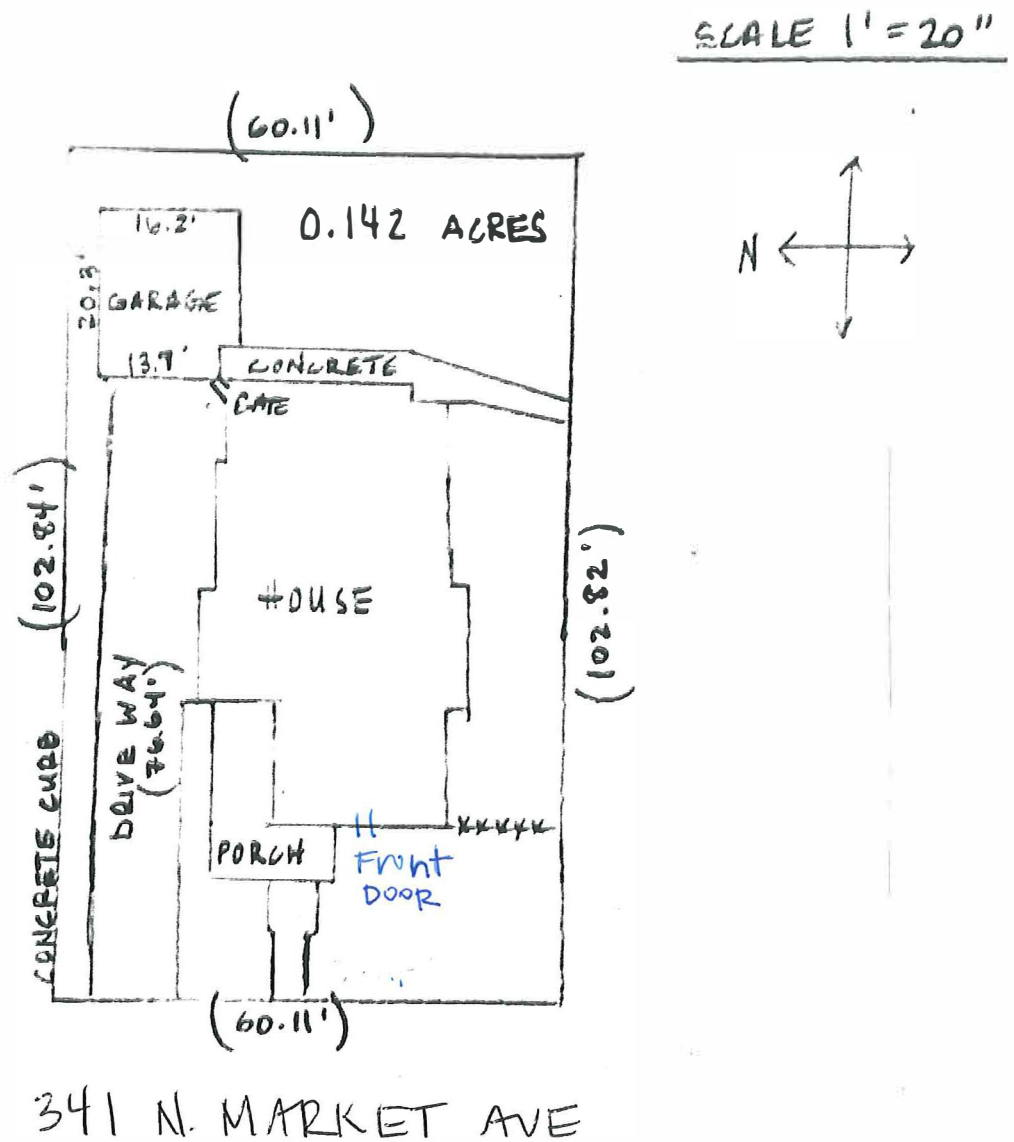 SCALE 1' = 20"
(60.11')
16.2'
0.142 ACRES
N
20.3'
GARAGE
13.9'
CONCRETE
GATE
(102.84')
HOUSE
(102.82')
DRIVE WAY
(76.64')
CONCRETE CURB
PORCH
Front
DOOR
(60.11')
341 N. MARKET AVE